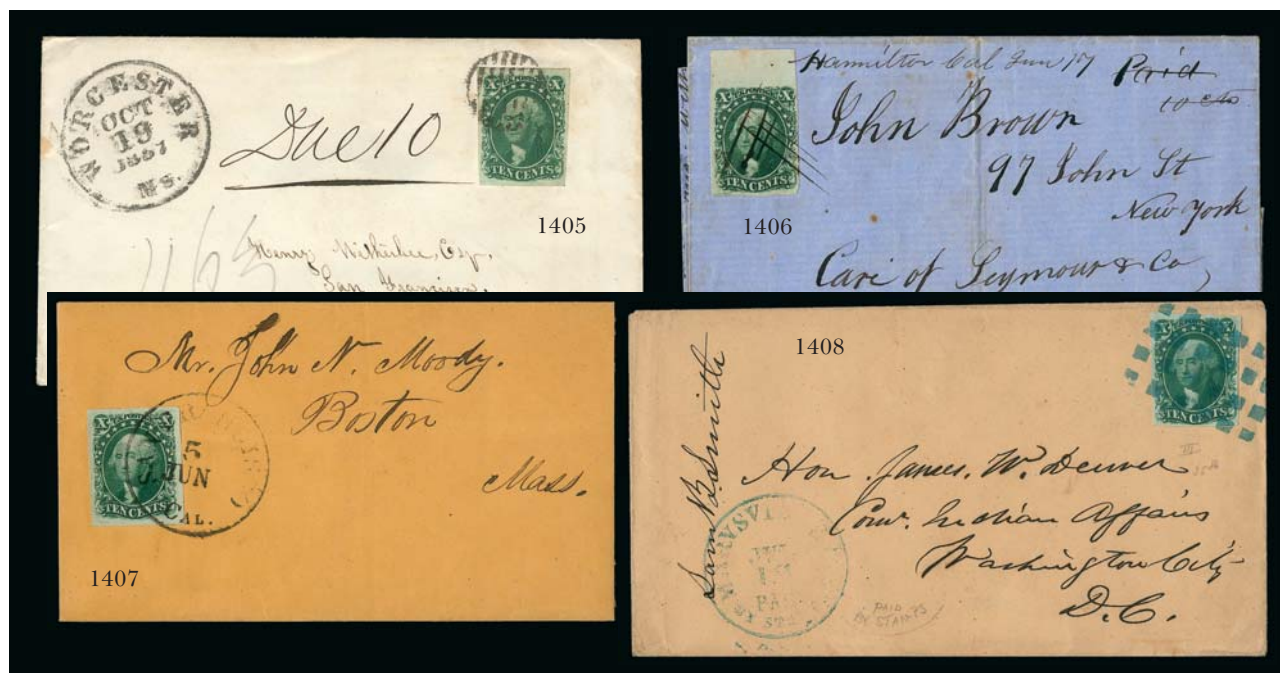 WORCESTER
OCT
19
1857
MS.
Due 10
X X
TEN CENTS
1405
Henry Witherbee, Esq.
San Francisco.
Hamilton Cal Jun 17 Paid
10 cts
John Brown
97 John St
New York
Care of Seymour & Co
X X
TEN CENTS
1406
Mr. John N. Moody.
Boston
Mass.
X X
TEN CENTS
5
JUN
CAL.
1407
1408
X X
TEN CENTS
Sam B. Smith
Hon. James. W. Denver
Com. Indian Affairs
Washington City
D.C.
MARYSVI
PAID
BY STAMPS